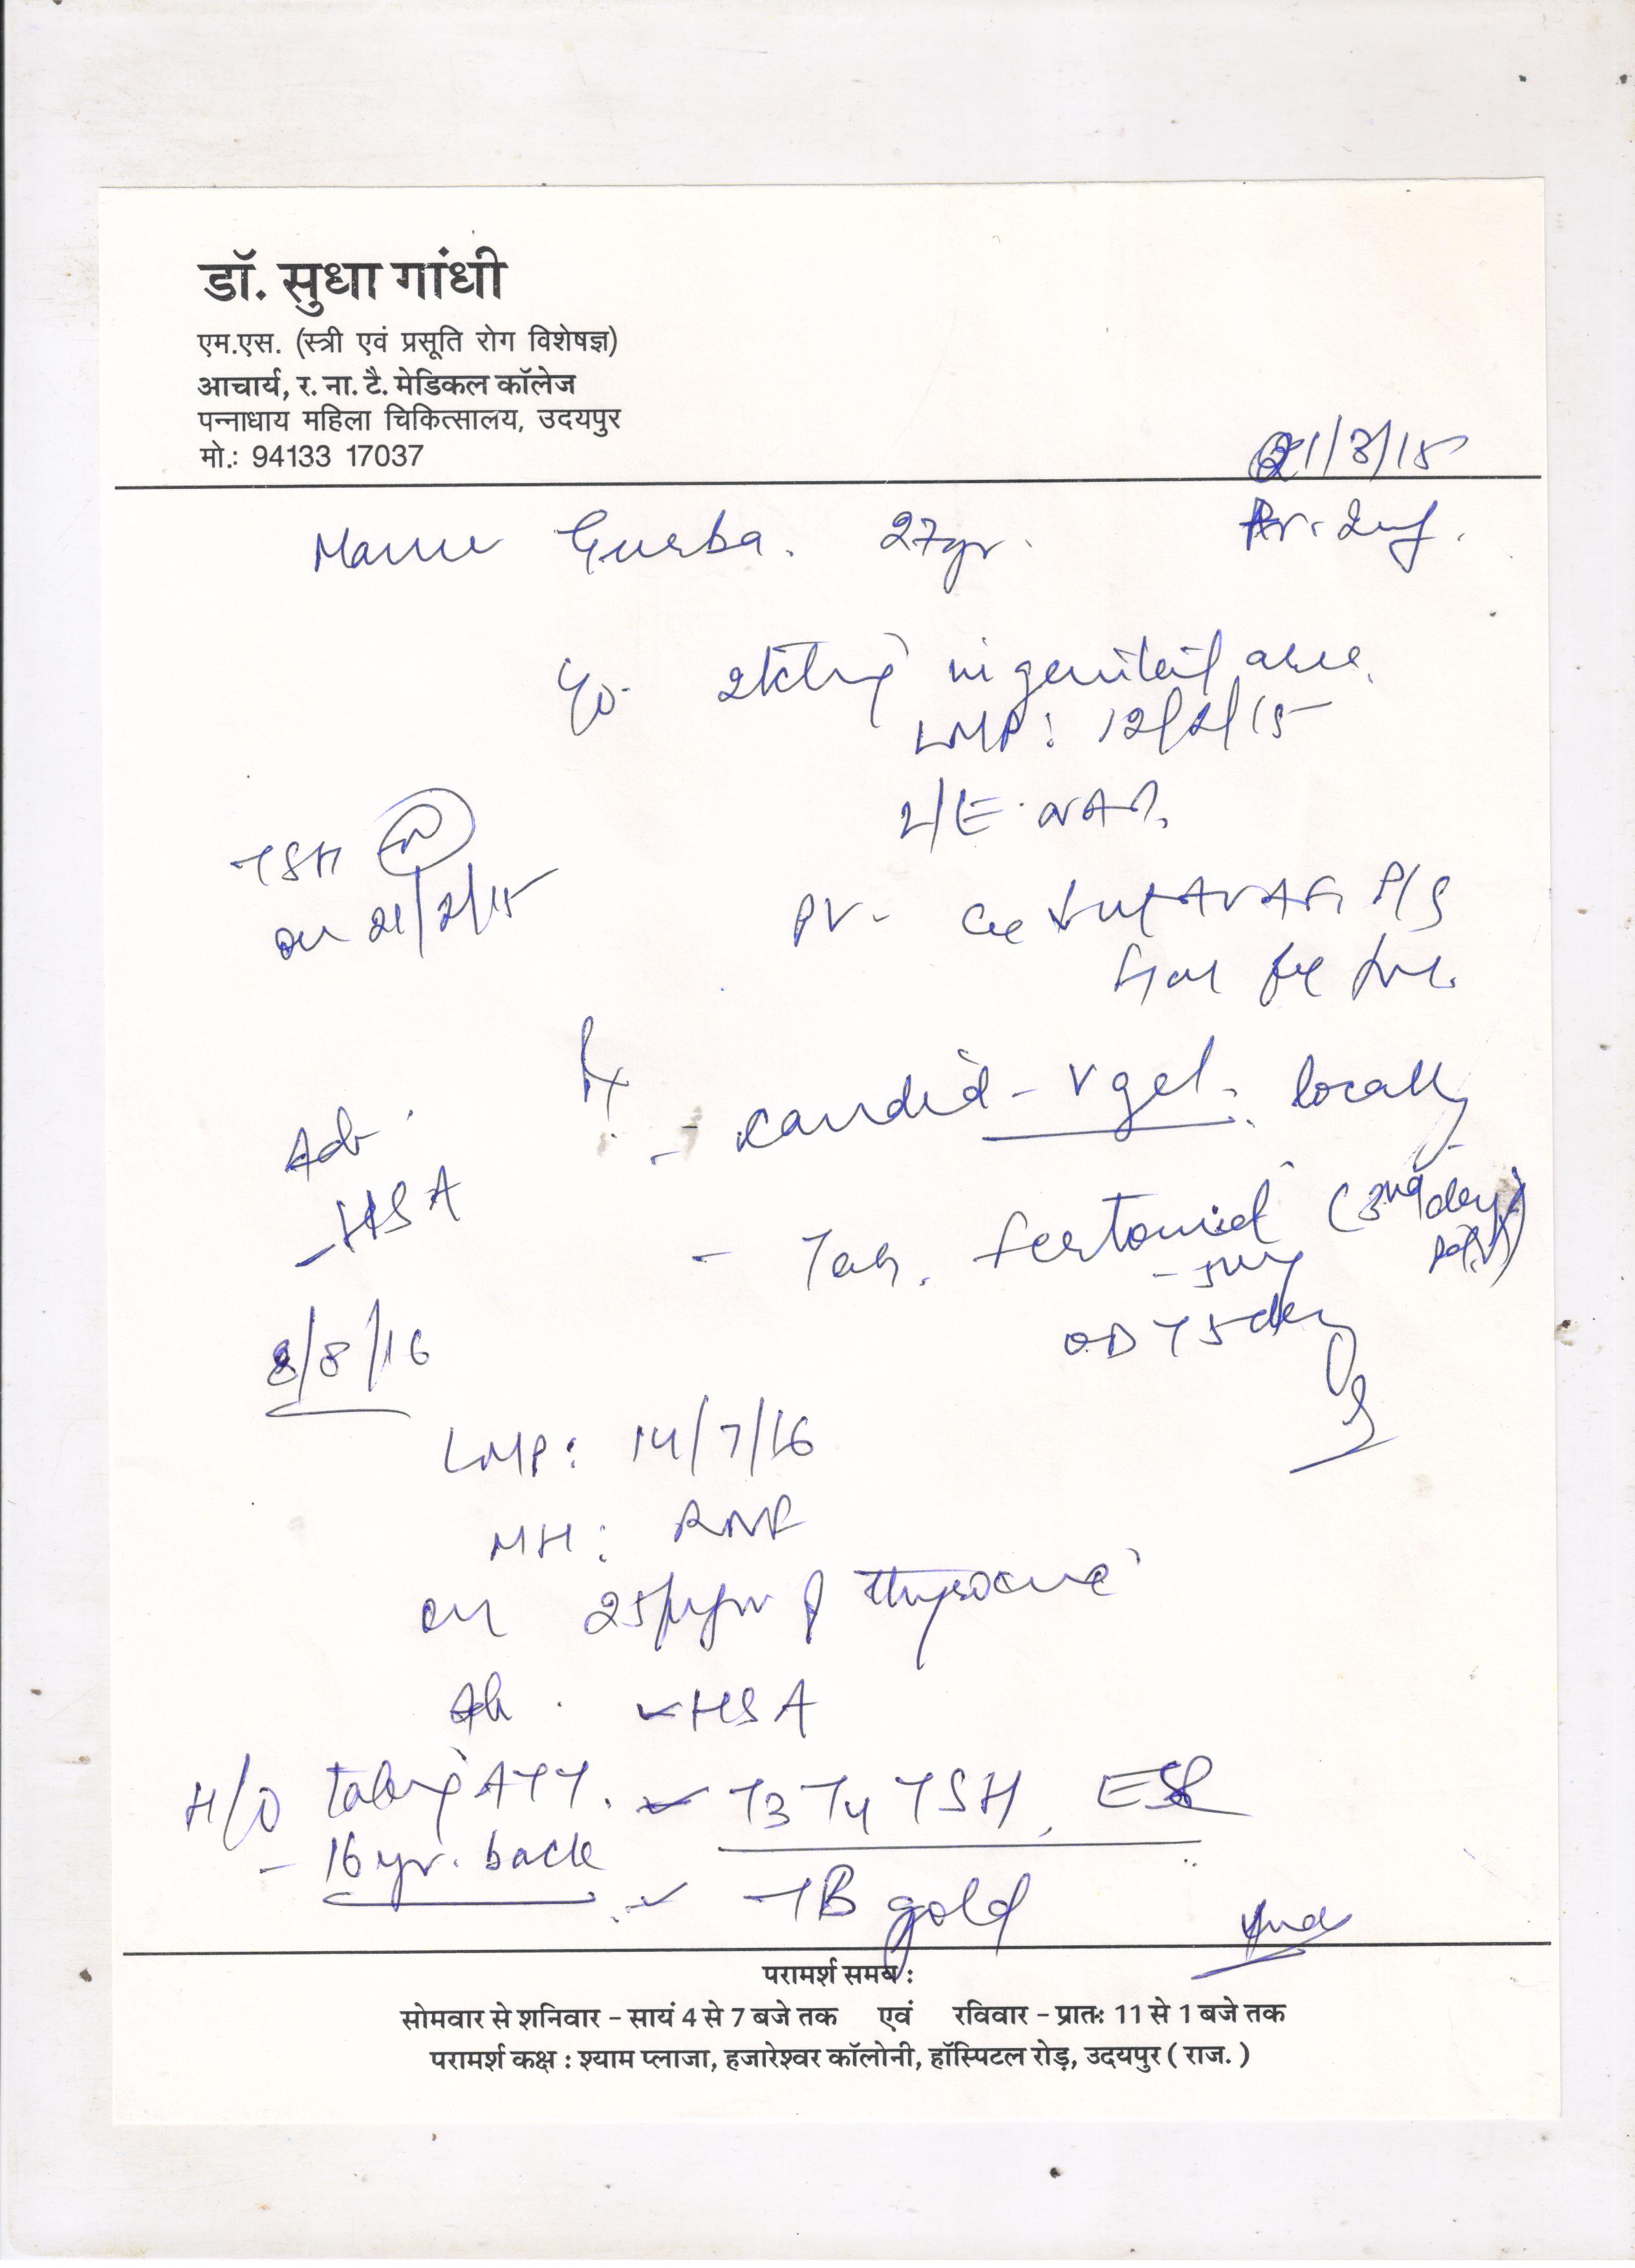 डॉ. सुधा गांधी
एम.एस. (स्त्री एवं प्रसूति रोग विशेषज्ञ)
आचार्य, र. ना. टै. मेडिकल कॉलेज
पन्नाधाय महिला चिकित्सालय, उदयपुर
मो.: 94133 17037
21/3/15
27yr.
c/o itching in genital area
LMP: 12/2/15
TSH
L/E NAD
on 21/2/15
PV- Cx ut AVAF P/S
Rx
- candid - V gel. locally
Adv
- HSA
- Tab. fertomid (2nd day
- 50mg
OD x 5 day
8/8/16
LMP: 14/7/16
MH: RMF
on 25μgm of thyroxine
Adv. HSA
H/O taking ATT. T3 T4 TSH, ESR
- 16 yr. back
TB gold
परामर्श समय :
सोमवार से शनिवार - सायं 4 से 7 बजे तक एवं रविवार - प्रातः 11 से 1 बजे तक
परामर्श कक्ष : श्याम प्लाजा, हजारेश्वर कॉलोनी, हॉस्पिटल रोड़, उदयपुर ( राज. )